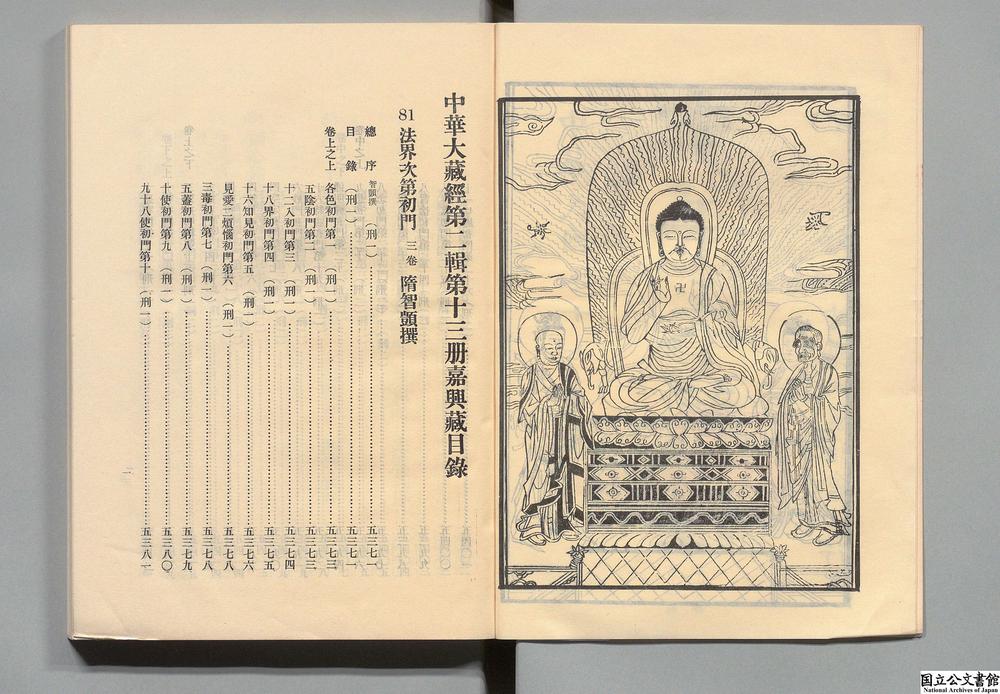 中華大藏經第二輯第十三册嘉興藏目錄
81 法界次第初門 三卷 隋智顗撰
總序 智顗撰 (刑一)……五三七一
目錄 (刑一)……五三七一
卷上之上 各色初門第一 (刑一)……五三七三
五陰初門第二 (刑一)……五三七三
十二入初門第三 (刑一)……五三七四
十八界初門第四 (刑一)……五三七五
十六知見初門第五 (刑一)……五三七六
見愛二煩惱初門第六 (刑一)……五三七八
三毒初門第七 (刑一)……五三七八
五蓋初門第八 (刑一)……五三七九
十使初門第九 (刑一)……五三八〇
九十八使初門第十 (刑一)……五三八一
一
卍
国立公文書館
National Archives of Japan